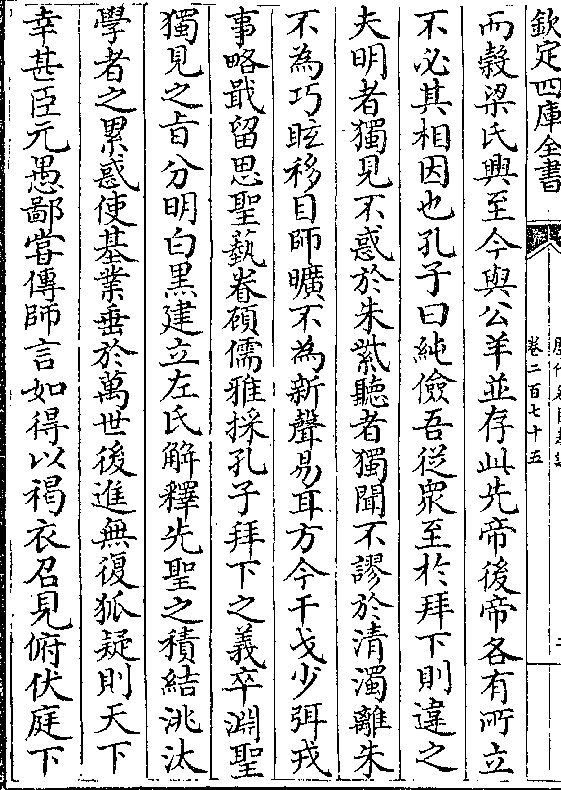 欽定四庫全書
卷二百七十五
而榖梁氏興至今與公羊並存此先帝後帝各有所立
不必其相因也孔子曰純儉吾從衆至於拜下則違之
夫明者獨見不惑於朱紫聽者獨聞不謬於清濁離朱
不為巧眩移目師曠不為新聲易耳方今干戈少弭戎
事略戢留思聖藝眷顧儒雅採孔子拜下之義卒淵聖
獨見之旨分明白黒建立左氏解釋先聖之積結洮汰
學者之累惑使基業垂於萬世後進無復狐疑則天下
幸甚臣元愚鄙嘗傳師言如得以褐衣召見俯伏庭下